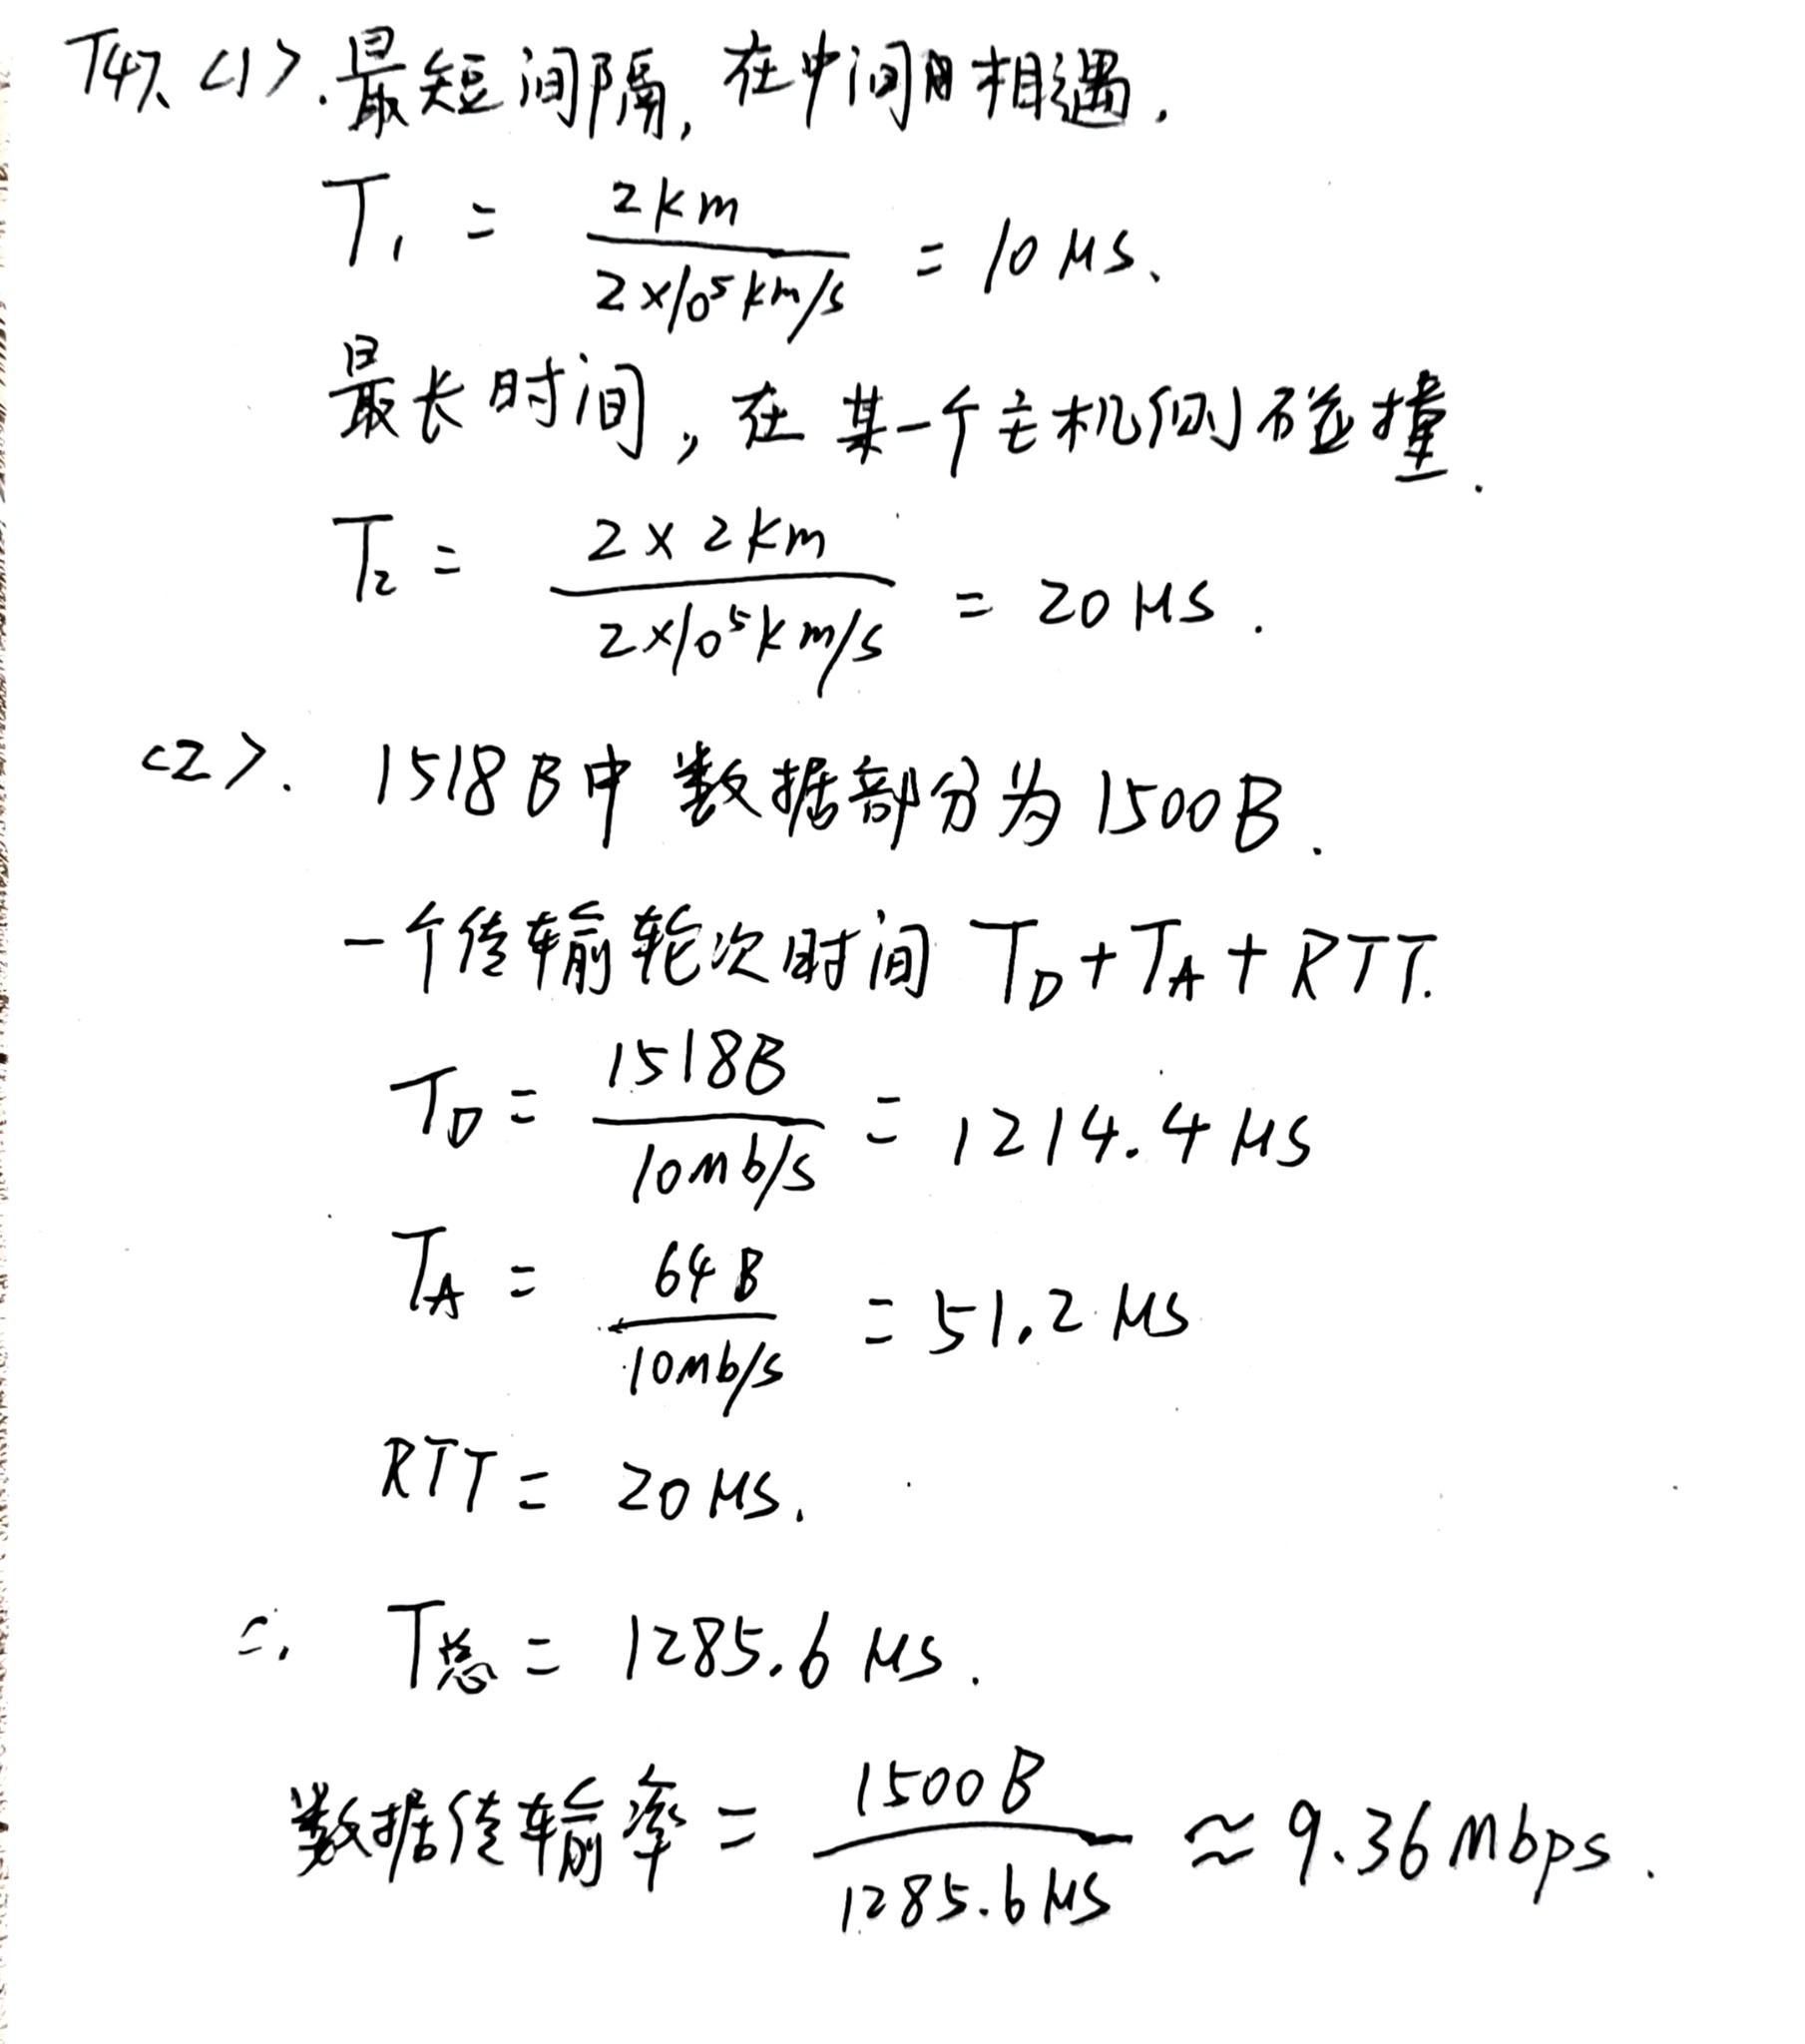 T47、<1>.最短间隔,在中间相遇.
T₁ = 2km / 2×10⁵km/s = 10μs、
最长时间,在某一个主机侧碰撞.
T₂ = 2×2km / 2×10⁵km/s = 20μs.
<2>. 1518B中数据部分为1500B.
一个传输轮次时间 T_D+T_A+RTT.
T_D = 1518B / 10Mb/s = 1214.4μs
T_A = 64B / 10Mb/s = 51.2μs
RTT = 20μs.
∴ T总 = 1285.6μs.
数据传输率 = 1500B / 1285.6μs ≈ 9.36Mbps.